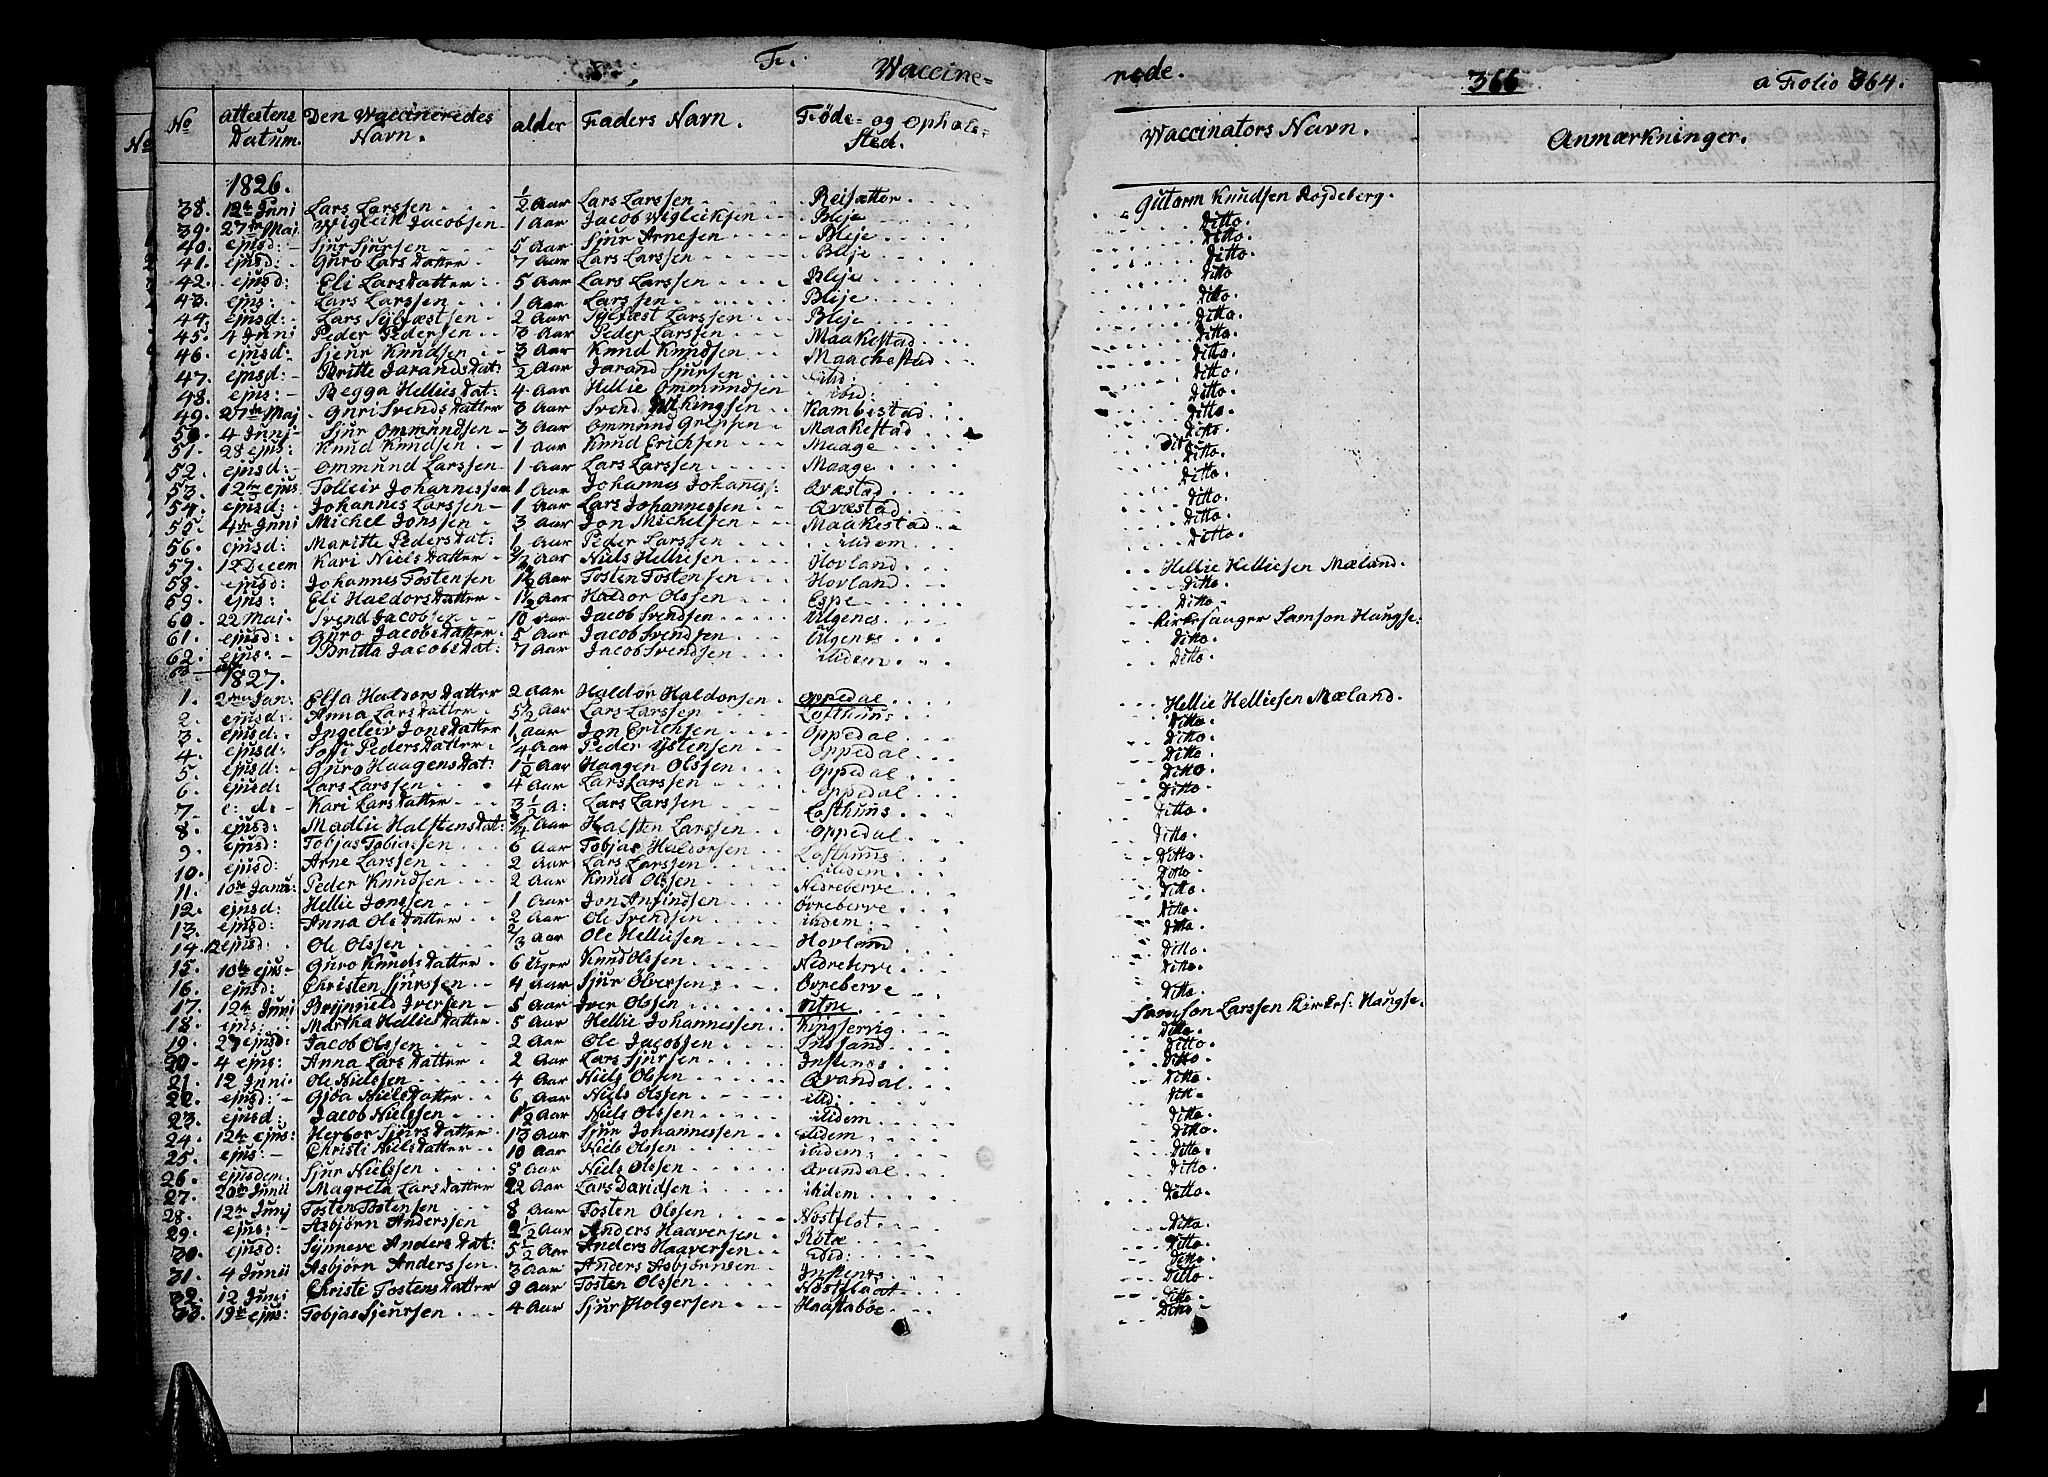 F. Waccine= rede. 366 a Folio 364.
No
No attestens Datum. Den Waccineredes Navn. alder Faders Navn. Føde= og Ophols= Sted. Waccinators Navn. Anmærkninger.
1826.
38. 12te Juni Lars Larssen ½ Aar Lars Larssen Reisætter Gutorm Knudsen Rogdeberg.
39. 27de Maj Wigleik Jacobsen 1 Aar Jacob Wigleiksen Bleje Ditto.
40. ejusd: Sjur Sjursen 5 Aar Sjur Arnesen Bleje Ditto.
41. ejusd: Guro Larsdatter 7 Aar Lars Larssen Bleje Ditto.
42. ejusd: Eli Larsdatter 5 Aar Lars Larssen Bleje Ditto
43. ejus: Lars Larssen 1 Aar Larssen Bleje Ditto.
44. ejusd: Lars Sylfæstsen 2 Aar Sylfæst Larssen Bleje Ditto.
45. 4 Juni Peder Pedersen 3 Aar Peder Larssen Maakestad Ditto.
46. ejusd: Sjur Knudsen 3 Aar Knud Knudsen Maachestad Ditto.
47. ejusd: Britte Jarandsdat: ½ Aar Jarand Sjursen ibid: Ditto.
48. ejus: Begga Helliesdat: 4 Aar Hellie Ommundsen ibid: Ditto.
49. 27de Maj Guri Svendsdatter 3 Aar Svend Wikingsen Kambestad Ditto.
50. 4 Junj Sjur Ommundsen 3 Aar Ommund Greipsen Maakestad Ditto.
51. 28 ejus: Knud Knudsen 1 Aar Knud Erichsen Maage Ditto.
52. ejusd: Ommund Larssen 1 Aar Lars Larssen Maage Ditto.
53. 12te ejus Tolleiv Johannessen 1 Aar Johannes Johaness: Qvæstad Ditto.
54. ejusd: Johannes Larssen 1 Aar Lars Johannessen Qvæstad Ditto.
55. 4de Juni Michel Jonssen 3 Aar Jon Michelsen Maakestad Ditto.
56. ejusd: Maritte Pedersdat: 1 Aar Peder Larssen ibidem
57. 12 Decem Kari Nielsdatter Aar Niels Helliesen Hovland Hellie Helliesen Mæland.
58. ejusd: Johannes Tostensen 1½ Aar Tosten Tostensen Hovland Ditto.
59. ejus: Eli Haldorsdatter 1½ Aar Haldor Olssen Espe Ditto.
60. 22 Mai Svend Jacobsen 10 Aar Jacob Svendsen Algenes Kirkesanger Samson Haugse:
61. ejusd: Guro Jacobsdatter 5 Aar Jacob Svendsen Algenes Ditto.
62. ejus: Britta Jacobsdat: 7 Aar Jacob Svendsen ibidem Ditto.
63
1827.
1. 2den Jan: Elsa Haldorsdatter 2 Aar Haldor Haldorsen Oppedal Hellie Helliesen Mæland.
2. ejusd: Anna Larsdatter 5½ Aar Lars Larssen Lofthuus Ditto.
3. ejusd: Ingeleiv Jonsdatter 1 Aar Jon Erichsen Oppedal Ditto.
4. ejusd: Sofi Pedersdatter ¼ Aar Peder Ystensen Oppedal Ditto.
5. ejusd: Guro Haagensdat: 1½ Aar Haagen Olssen Oppedal Ditto.
6. ejusd: Lars Larssen 4 Aar Lars Larssen Oppedal Ditto.
7. e: d: Kari Larsdatter 3½ A: Lars Larssen Lofthuus Ditto.
8. ejusd: Madlie Halstensdat: Aar Halsten Larssen Oppedal Ditto.
9. ejusd: Tobjas Tobiassen 6 Aar Tobjas Haldorsen Lofthuus Ditto.
10. ejusd: Arne Larssen 2 Aar Lars Larssen ibidem Ditto.
11. 10de Janu: Peder Knudsen 2 Aar Knud Olssen Nedreberve Ditto.
12. ejusd: Hellie Jonssen 1 Aar Jon Anfindsen Øvreberve Ditto.
13. ejusd: Anna Olsdatter 2 Aar Ole Svendsen ibidem Ditto.
14. 12 ejusd: Ole Olssen 2/3 Aar Ole Helliesen Hovland Ditto.
15. 10de ejus: Guro Knudsdatter 6 Uger Knud Olssen Nedreberve Ditto.
16. ejusd: Christen Sjurssen 4 Aar Sjur Olversen Øvreberve Ditto.
17. 12te Juni Brynjuld Iversen 5 Aar Iver Olssen Vitne Samson Larssen Kirkes: Haugse.
18. ejus: Martha Helliesdatter 5 Aar Hellie Johannessen Kingservig Ditto.
19. 27 ejusd: Jacob Olssen 2 Aar Ole Jacobsen Ditto.
20. 4 ejus: Anna Larsdatter 2 Aar Lars Sjursen Instenes Ditto.
21. 12 Juni Ole Nielssen 4 Aar Niels Olssen Qvandal Ditto.
22. ejusd: Gjøa Nielsdatter 6 Aar Niels Olssen ibid: Ditto
23. ejusd: Jacob Nielssen 1½ Aar Niels Olssen ibidem Ditto.
24. 12te ejus: Herbor Sjursdatter 13 Aar Sjur Johannessen ibidem Ditto.
25. ejus: Christi Nielsdatter 10 Aar Niels Olssen ibidem Ditto.
26. ejusdem Sjur Nielssen 8 Aar Niels Olssen Qvandal Ditto.
27. 20de Junii Magreta Larsdatter 22 Aar Lars Davidsen ibidem Ditto.
28. 12te Junj Tosten Tostensen 8 Aar Tosten Olssen Nøstflot
29. ejus: Asbjørn Anderssen 2½ Aar Anders Haaversen Røtæ Ditto.
30. ejusd: Synneve Andersdat: 5½ Aar Anders Haaversen ibid: Ditto.
31. 4 Junii Asbjørn Anderssen 3 Aar Anders Asbjørnsen Instenes Ditto.
32. 12 Juni Christi Tostensdatter 9 Aar Tosten Olssen Nøstflaat Ditto.
33. 19de ejus: Tobjas Sjeursen 4 Aar Sjur Holgersen Haastabøe Ditto